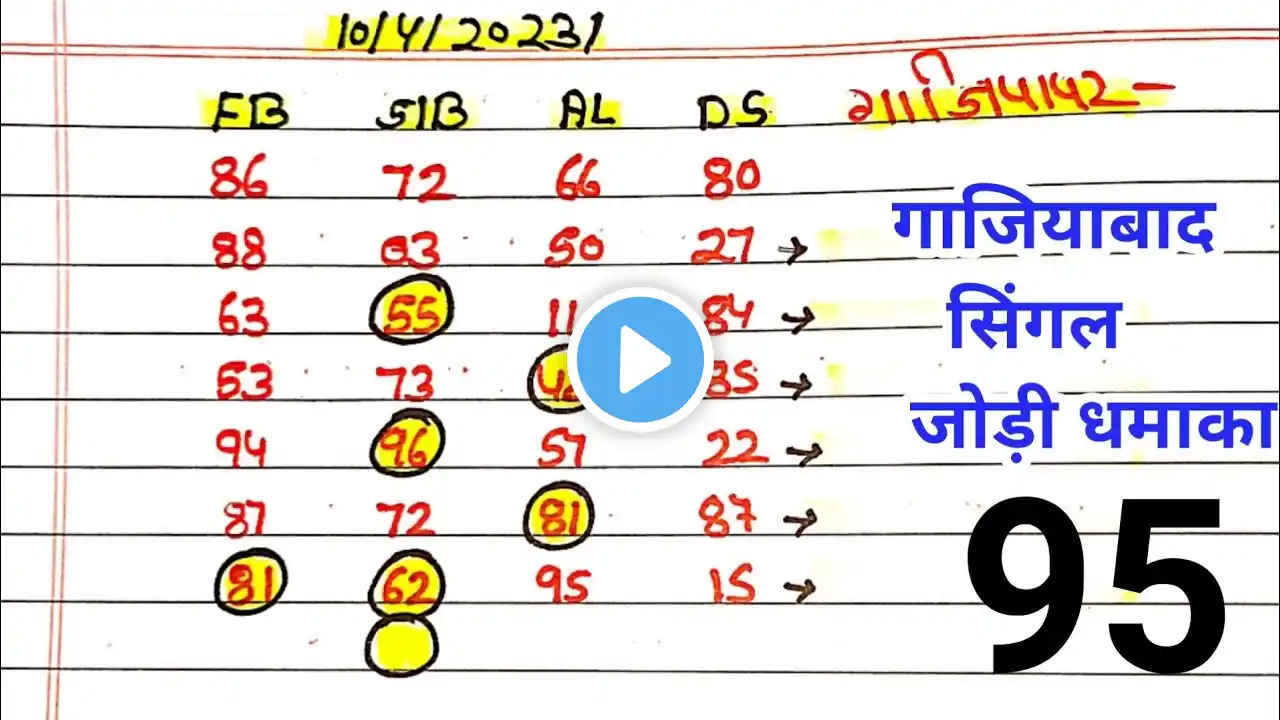 10/4/2023/
FB GIB AL DS गाजियाबाद-
86 72 66 80
88 03 50 27 → गाजियाबाद
63 55 11 84 → सिंगल
53 73 35 →
94 96 57 22 → जोड़ी धमाका
87 72 81 87 → 95
81 62 95 15 →